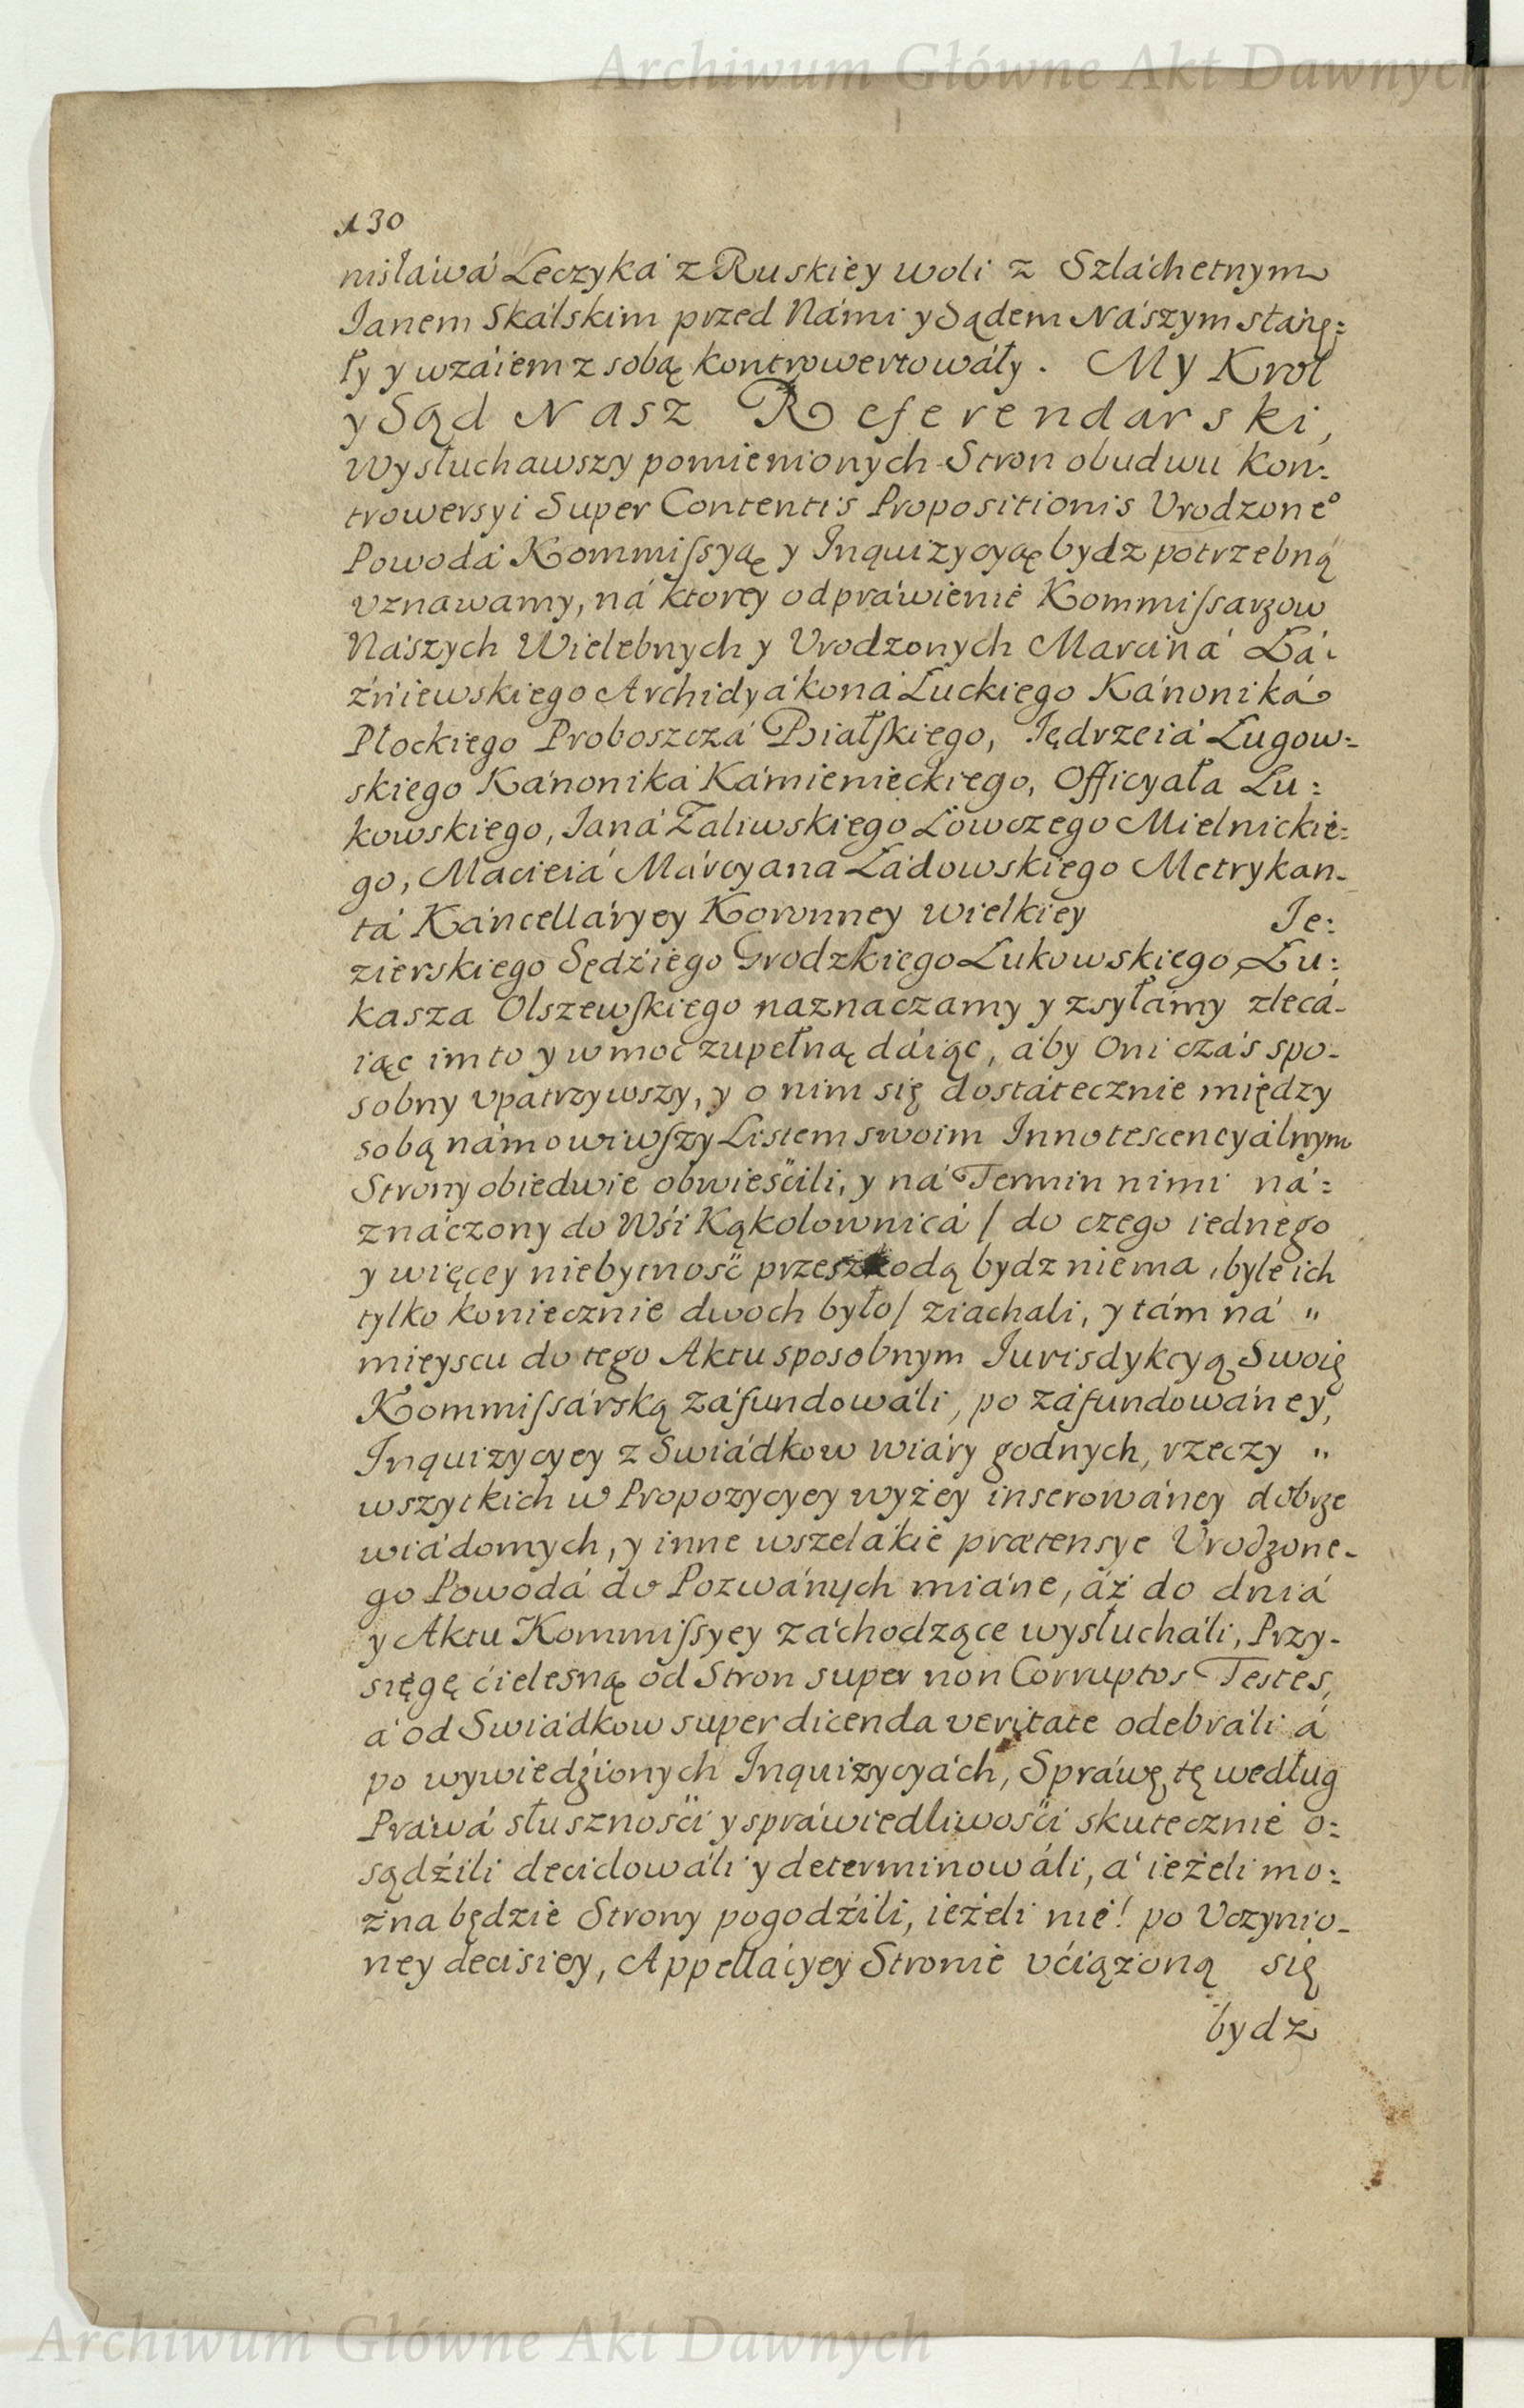 Archiwum Główne Akt Dawnych
130
nisławá Leczyká z Ruskiey woli z Szláchetnym
Janem Skálskim przed Námi y Sądem Nászym stánę:
ły y wzáiem z sobą kontrowertowáły. My Krol
y Sąd Nasz Referendarski,
Wysłuchawszy pomienionych Stron obudwu Kon:
trowersyi Super Contentis Propositionis Urodzone͏̊
Powodá Kommiſsyą y Inquizycyą bydz potrzebną
vznawamy, ná ktorey odpráwienie Kommiſsarzow
Nászych Wielebnych y Urodzonych Marciná Lá:
źniewskiego Archidyákoná Łuckiego Kánoniká
Płockiego Proboszczá Białſkiego, Jędrzeiá Ługow:
skiego Kánoniká Kámienieckiego, Officyała Łu:
kowskiego, Janá Zaliwskiego Łowczego Mielnickie:
go, Macieiá Márcyana Ładowskiego Metrykan-
tá Káncelláryey Koronney wielkiey Je:
zierskiego Sędźiego Grodzkiego Łukowskiego, Łu:
kasza Olszewſkiego naznaczamy y zsyłámy zlecá-
iąc im to y w moc zupełną dáiąc, áby Oni czás spo-
sobny vpatrzywszy, y o nim się dostátecznie między
sobą námowiwſzy Listem swoim Innotescencyálnym
Strony obiedwie obwieśćili, y ná Termin nimi ná:
znáczony do Wśi Kąkolownicá / do czego iednego
y więcey niebytność przeszkodą bydz niema, byle ich
tylko koniecznie dwoch było / ziachali, y tám ná "
mieyscu do tego Aktu sposobnym Jurisdykcyą Swoię
Kommiſsárską záfundowáli, po záfundowáney,
Inquizycyey z Swiádkow wiáry godnych, rzeczy "
wszytkich w Propozycyey wyżey inserowáney dobrze
wiádomych, y inne wszelákie prætensye Urodzone-
go Powodá do Pozwánych miáne, áż do dniá
y Aktu Kommiſsyey záchodzące wysłucháli, Przy-
sięgę ćielesną od Stron super non Corruptos Testes,
á od Swiádkow super dicenda veritate odebráli á
po wywiedźionych Inquizycyách, Spráwę tę według
Prawá słusznośći y spráwiedliwośći skutecznie o:
sądźili decidowáli y determinowáli, á ieżeli mo:
żna będzie Strony pogodźili, ieżeli nie! po Uczynio-
ney decisiey, Appellácyey Stronie vćiążoną się
bydz
Archiwum Główne Akt Dawnych